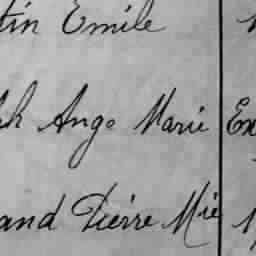 tin Emile
ph Ange Marie En
and Pierre Mie